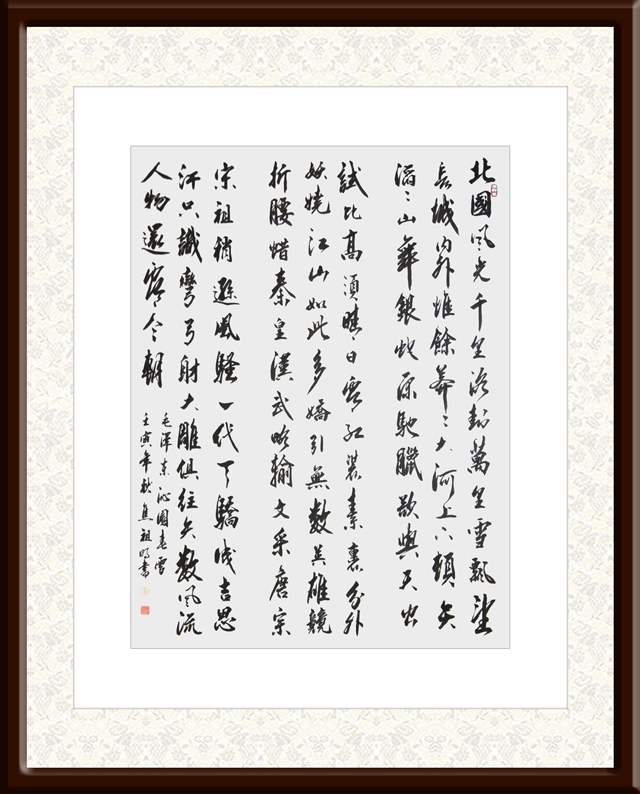 北國风光千里冰封萬里雪飄望
長城內外惟餘莽〻大河上下頓失
滔〻山舞銀蛇原馳臘欲與天公
試比高須晴日看紅裝素裹分外
妖嬈江山如此多嬌引無數英雄競
折腰惜秦皇漢武略輸文采唐宗
宋祖稍遜風騷一代天驕成吉思
汗只識彎弓射大雕俱往矣數风流
人物還看今朝
毛澤東沁園春雪
壬寅年秋焦祖明書